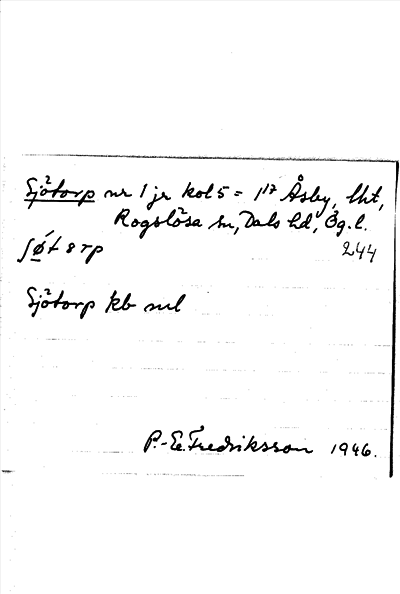 Sjötorp nr 1 jr kol 5 = 1/17 Åsby, lht,
Rogslösa sn, Dals hd, Ög.l.
244
Sjötorp kb ml
P.-E. Fredriksson 1946.